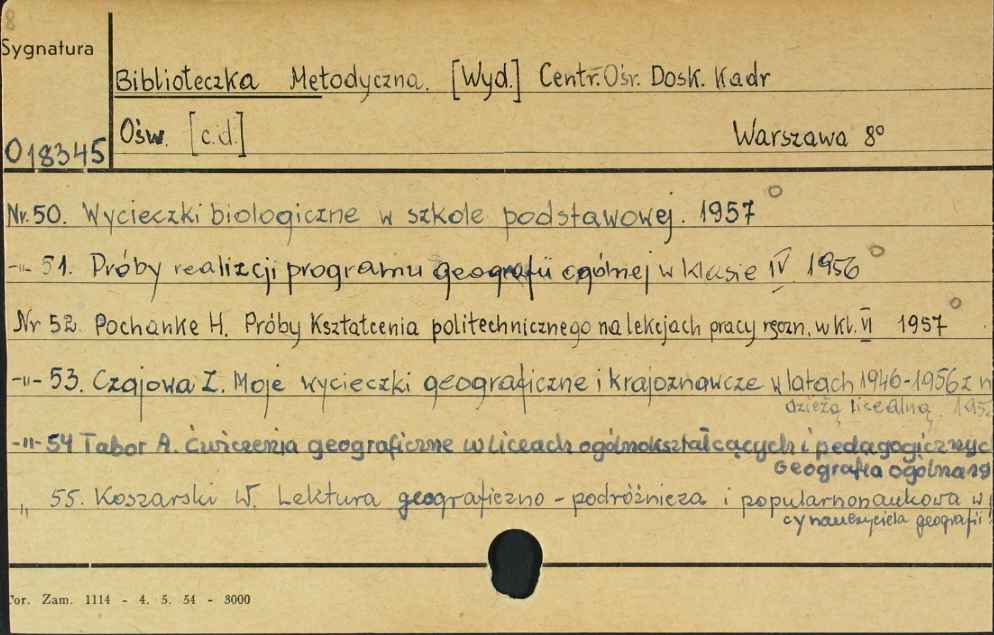 8
Sygnatura
Biblioteczka Metodyczna. [Wyd.] Centr. Ośr. Dosk. Kadr
Ośw. [c.d.] Warszawa 8°
018345
Nr. 50. Wycieczki biologiczne w szkole podstawowej. 1957
-"- 51. Próby realizcji programu geografii ogólnej w klasie IV 1956
Nr 52. Pochanke H. Próby Kształcenia politechnicznego na lekcjach pracy ręczn. w kl. VI 1957
-"- 53. Czajowa Z. Moje wycieczki geograficzne i krajoznawcze w latach 1946-1956 z
dzieżą licealną.
-"- 54 Tabor A. Ćwiczenia geograficzne w liceach ogólnokształcących i pedagogicznyc
Geografia ogólna 19
" 55. Koszarski W. Lektura geograficzno-podróżnicza i popularnonaukowa w
cy nauczyciela geografii
Zam. 1114 - 4. 5. 54 - 3000